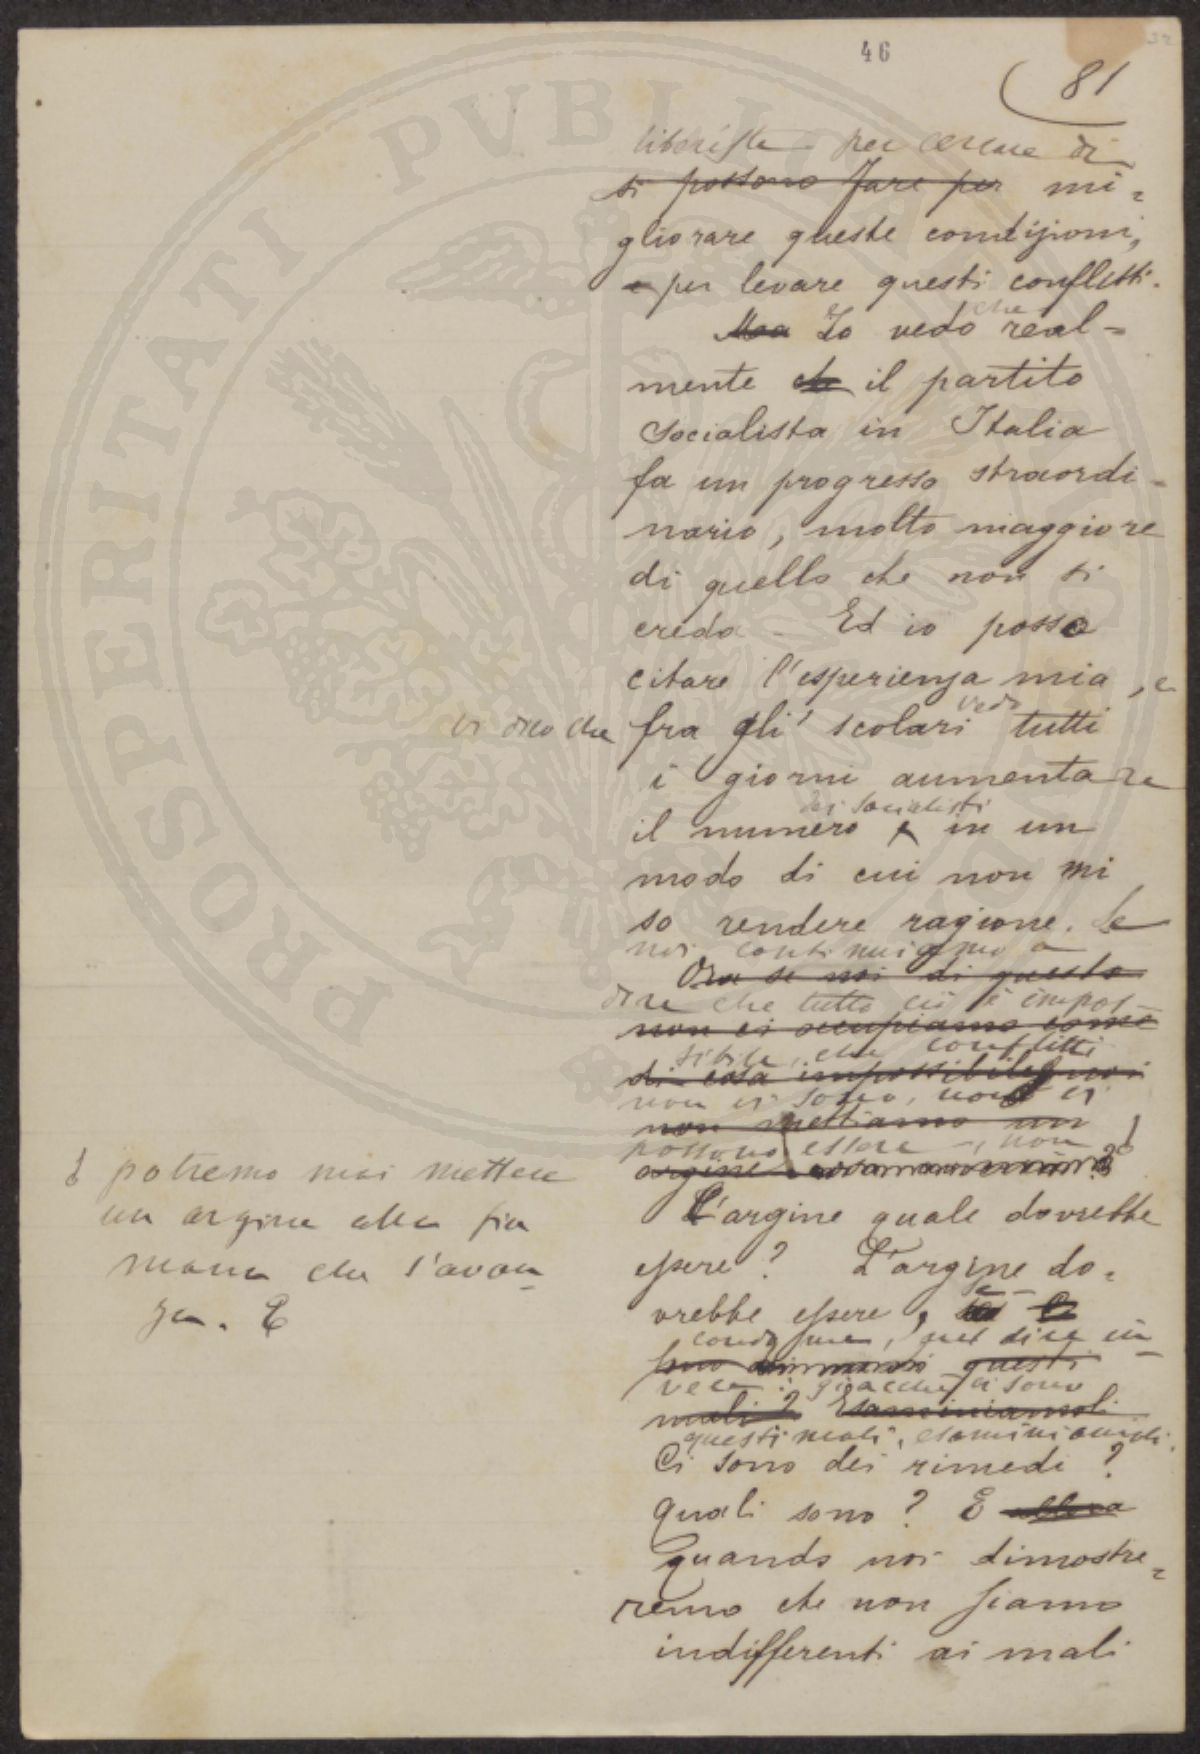 46
81
liberista per cercare di
si possono fare per mi=
gliorare queste condizioni,
e per levare questi conflitti.
che
Ma Io vedo real=
mente che il partito
socialista in Italia
fa un progresso straordi=
nario, molto maggiore
di quello che non si
creda - Ed io posso
citare l'esperienza mia, e
vedo
vi dico che fra gli scolari tutti
i giorni aumentare
dei socialisti
il numero e in un
modo di cui non mi
so rendere ragione. Se
noi continuiamo a
Ora se noi di questo
dire che tutto ciò è impos-
non ci occupiamo come
sibile, che conflitti
di cosa impossibile, noi
non vi sono, non vi
non mettiamo un
possono essere, non
argine
potremo mai mettere
un argine alla fiu
mana che s'avan
za.
L'argine quale dovrebbe
essere? L'argine do=
vrebbe essere,
nel dire in
può questi
vece: giacché ci sono
mali? Esaminiamoli
questi mali, esaminiamoli.
Ci sono dei rimedi?
Quali sono? E allora
quando noi dimostre=
remo che non siamo
indifferenti ai mali
PROSPERITATI PVBLICAE